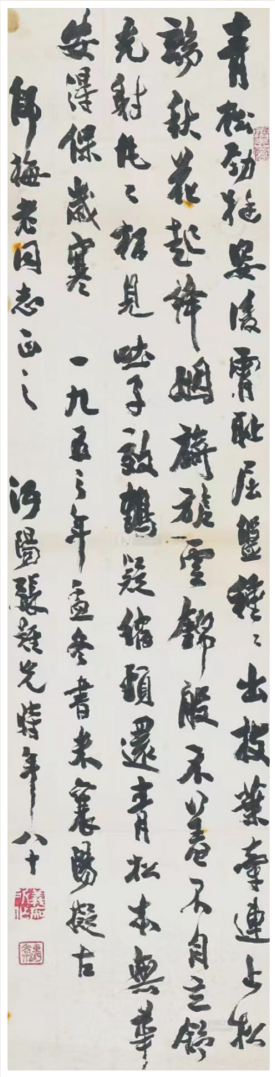 青松勁挺姿凌霄恥屈盤種〻出枝葉牽連上松
端秋花起絳烟旖旎雲錦殷不羞不自立舒
光射丸〻柏見吐子效鶴疑縮頸還青松本無華
安得保歲寒 一九五三年孟冬書米襄陽擬古
師梅老同志正之 沔陽張難先時年八十